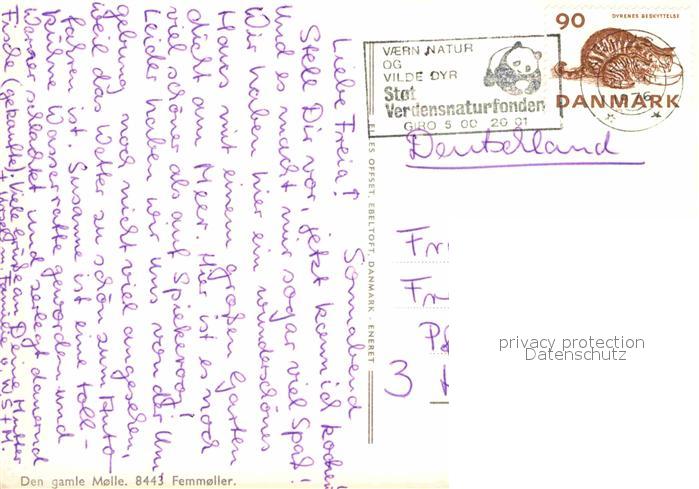 Liebe Freia! Sonnabend
Stell Dir vor, jetzt kann ich kochen
und es macht mir sogar viel Spaß!
Wir haben hier ein wunderschönes
Haus mit einem großen Garten
dicht am Meer. Hier ist es noch
viel schöner als auf Spiekeroog!
Leider haben wir uns von der Um
gebung noch nicht viel angesehen,
weil das Wetter zu schön zum Auto-
fahren ist. Susanne ist eine toll-
kühne Wasserratte geworden und
Werner schlachtet und zerlegt dauernd
Fische (gekaufte). Viele Grüße an Deine Mutter
Familie v. W S + M.
Den gamle Mølle. 8443 Femmøller.
ES OFFSET, EBELTOFT, DANMARK - ENERET
VÆRN NATUR
OG
VILDE DYR
Støt
Verdensnaturfonden
GIRO 5 00 20 01
90
DYRENES BESKYTTELSE
DANMARK
76
Deutschland
3
privacy protection
Datenschutz